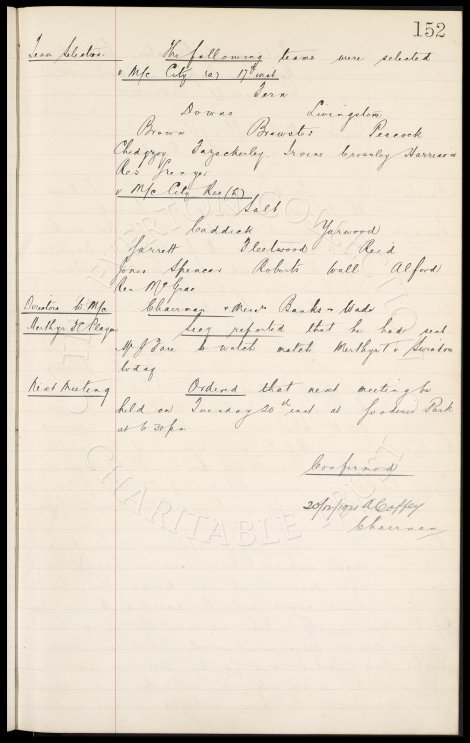 152
Team Selection The following teams were selected
v M/c City (a) 17th inst
Fern
Downs Livingstone
Brown Brewster Peacock
Chedgzoy Fazackerley Irvine Crossley Harrison
Res Spencer
v M/c City Res (h)
Salt
Caddick Yarwood
Jarrett Fleetwood Reid
Jones Spencer Roberts Wall Alford
Res McGrae
Directors to M/c Chairman & Messrs Banks & Wade
Merthyr FC Player Secy reported that he had sent
Mr J Fare to watch match Merthyr v Swindon
today
Next Meeting Ordered that next meeting be
held on Tuesday 20th inst at Goodison Park
at 6 30 pm
Confirmed
20/12/1921 A Coffey
Chairman
THE EVERTON COLLECTION
CHARITABLE TRUST